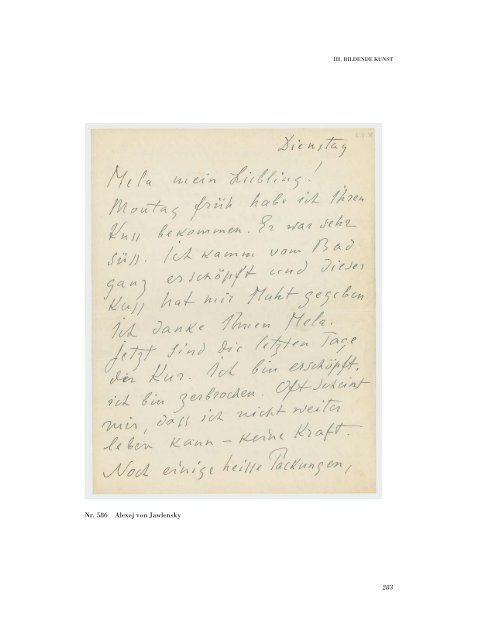 III. BILDENDE KUNST
Dienstag
Mela mein Liebling!
Montag früh habe ich Ihren
Kuss bekommen. Er war sehr
süss. Ich kamm vom Bad
ganz erschöpft und dieser
Kuss hat mir Muht gegeben
Ich danke Ihnen Mela.
Jetzt sind die letzten Tage
der Kur. Ich bin erschöpft,
ich bin zerbrochen. Oft scheint
mir, dass ich nicht weiter
leben kann – keine Kraft.
Noch einige heisse Packungen,
Nr. 586 Alexej von Jawlensky
283